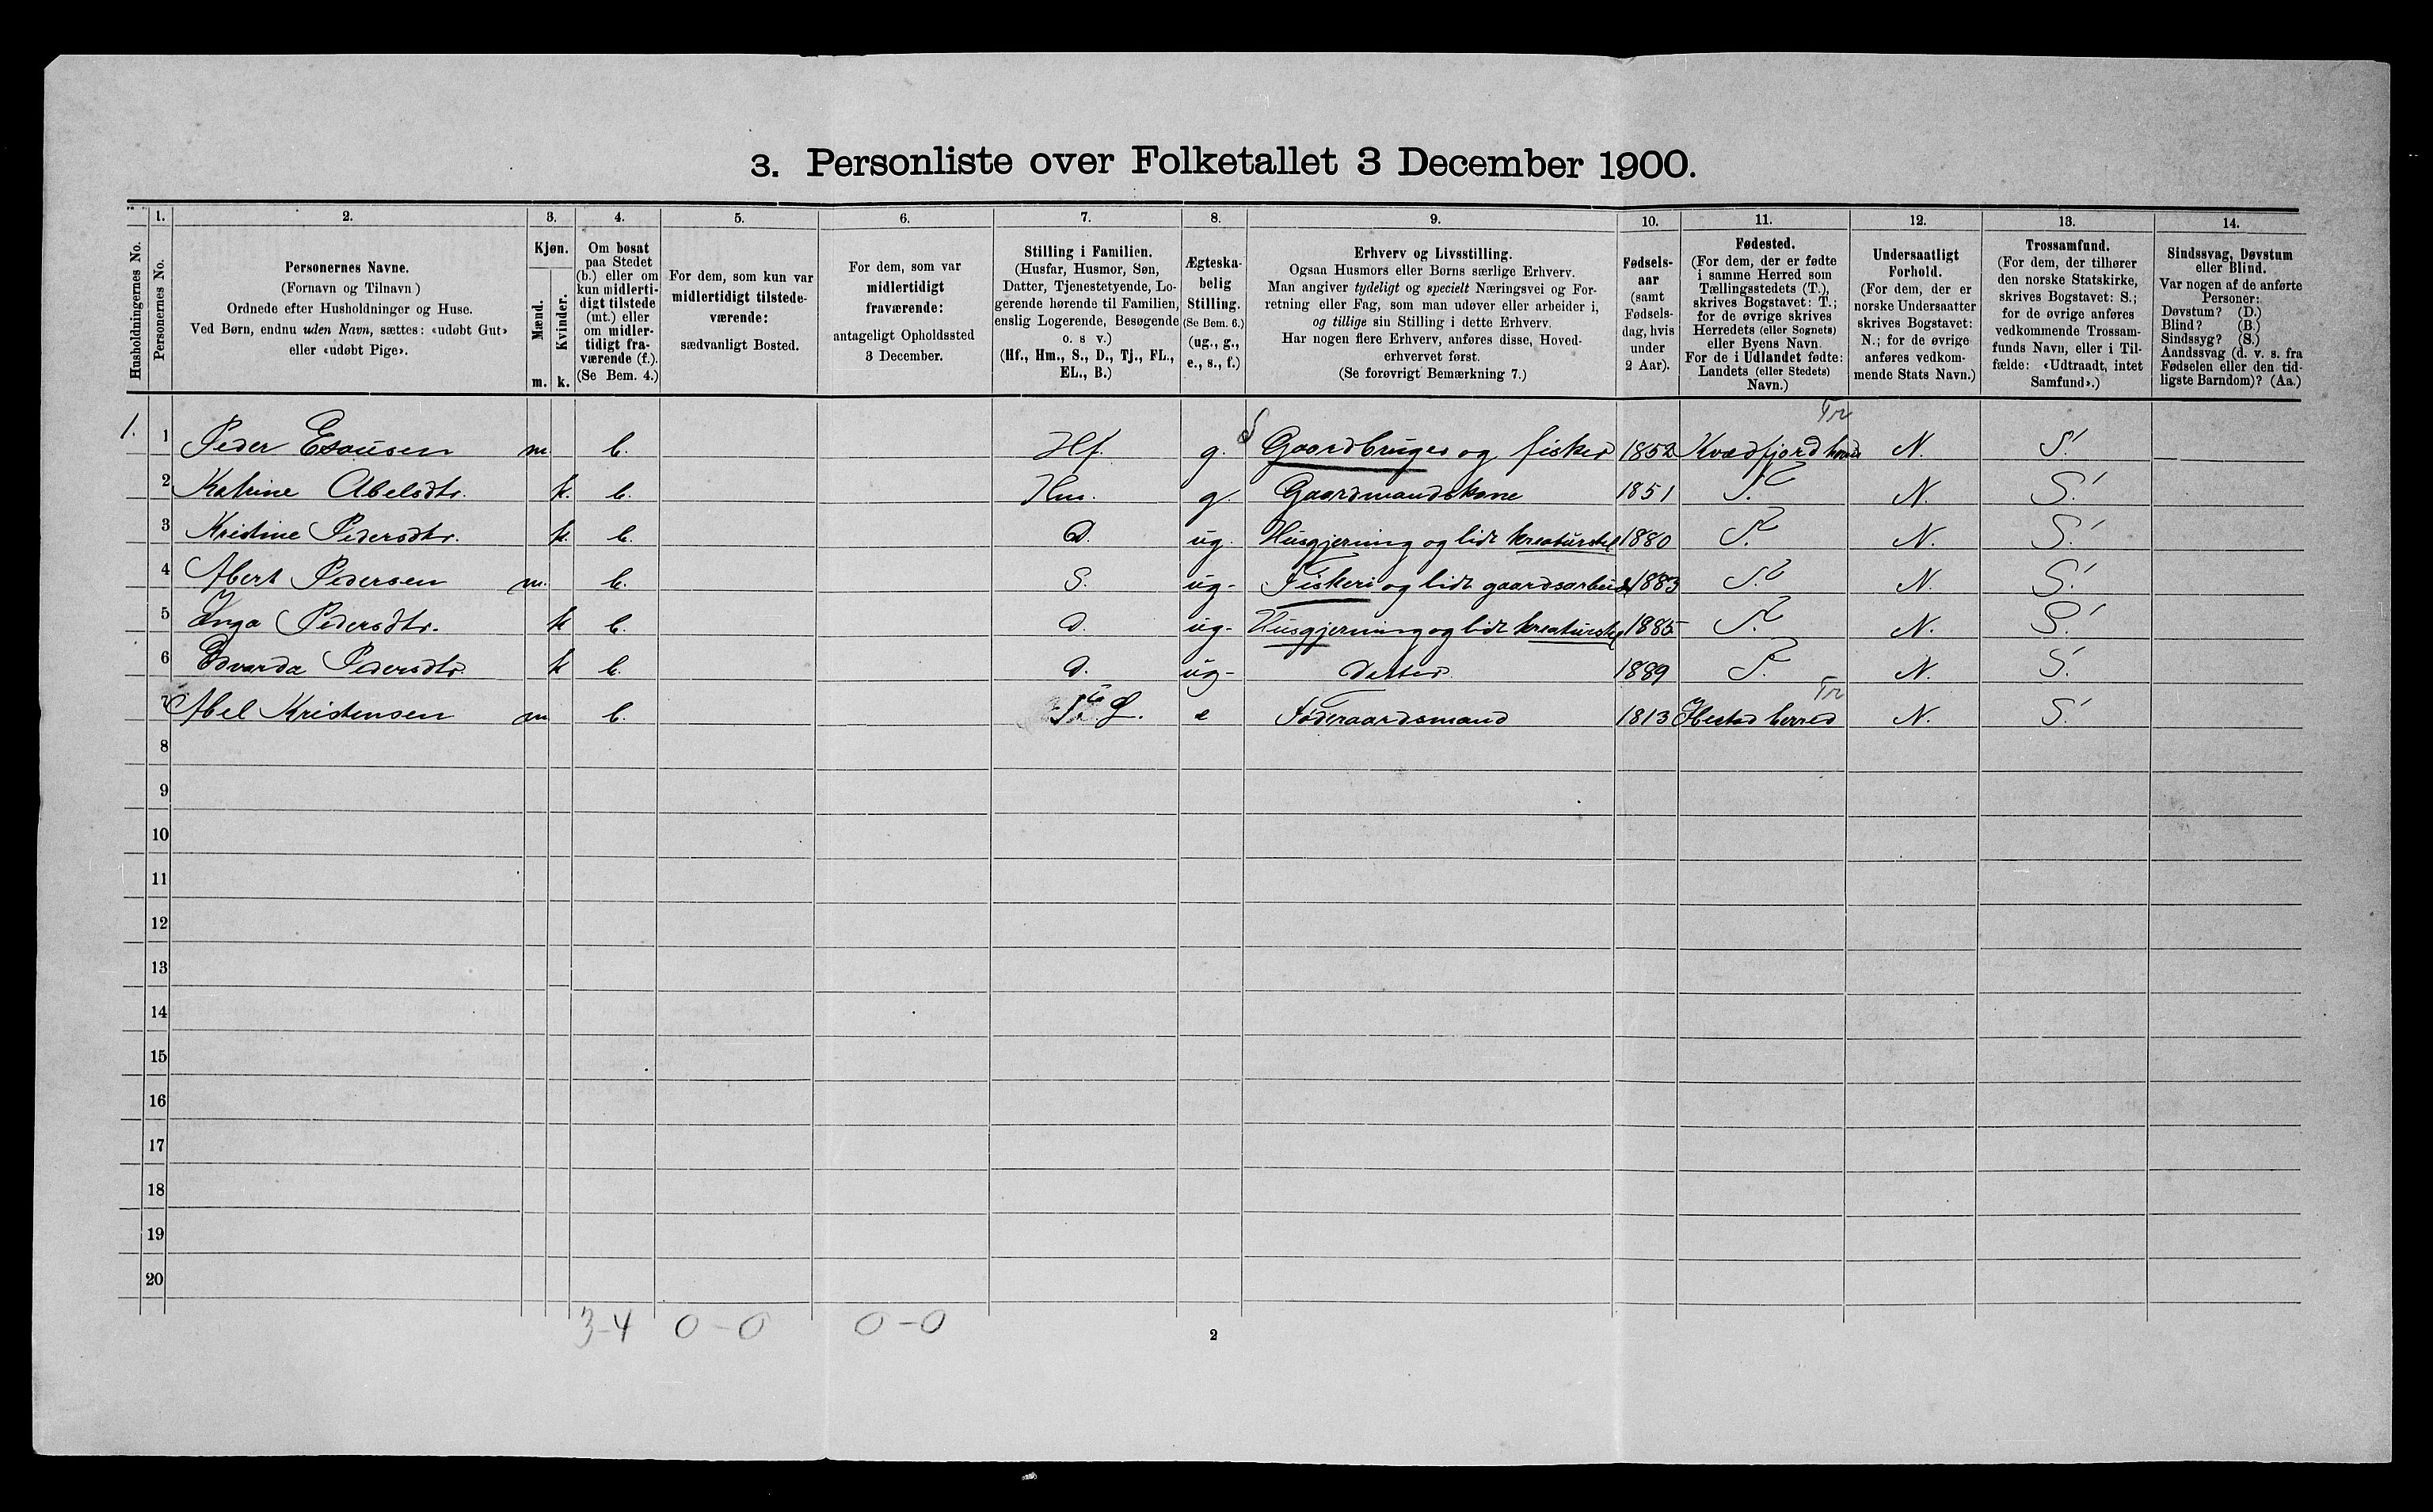 3. Personliste over Folketallet 3 December 1900.
Husholdningernes No.
1.
Personernes No.
2.
Personernes Navne.
(Fornavn og Tilnavn)
Ordnede efter Husholdninger og Huse.
Ved Børn, endnu uden Navn, sættes: «udøbt Gut»
eller «udøbt Pige».
3.
Kjøn.
Mænd.
Kvinder.
m. k.
4.
Om bosat
paa Stedet
(b.) eller om
kun midlerti-
digt tilstede
(mt.) eller
om midler-
tidigt fra-
værende (f.).
(Se Bem. 4.)
5.
For dem, som kun var
midlertidigt tilstede-
værende:
sædvanligt Bosted.
6.
For dem, som var
midlertidigt
fraværende:
antageligt Opholdssted
3 December.
7.
Stilling i Familien.
(Husfar, Husmor, Søn,
Datter, Tjenestetyende, Lo-
gerende hørende til Familien,
enslig Logerende, Besøgende
o. s v.)
(Hf., Hm., S., D., Tj., FL.,
EL., B.)
8.
Ægteska-
belig
Stilling.
(Se Bem. 6.)
(ug., g.,
e., s., f.)
9.
Erhverv og Livsstilling.
Ogsaa Husmors eller Børns særlige Erhverv.
Man angiver tydeligt og specielt Næringsvei og For-
retning eller Fag, som man udøver eller arbeider i,
og tillige sin Stilling i dette Erhverv.
Har nogen flere Erhverv, anføres disse, Hoved-
erhvervet først.
(Se forøvrigt Bemærkning 7.)
10.
Fødsels-
aar
(samt
Fødsels-
dag, hvis
under
2 Aar).
11.
Fødested.
(For dem, der er fødte
i samme Herred som
Tællingsstedets (T.),
skrives Bogstavet: T.;
for de øvrige skrives
Herredets (eller Sognets)
eller Byens Navn.
For de i Udlandet fødte:
Landets (eller Stedets)
Navn.)
12.
Undersaatligt
Forhold.
(For dem, der er
norske Undersaatter
skrives Bogstavet:
N.; for de øvrige
anføres vedkom-
mende Stats Navn.)
13.
Trossamfund.
(For dem, der tilhører
den norske Statskirke,
skrives Bogstavet: S.;
for de øvrige anføres
vedkommende Trossam-
funds Navn, eller i Til-
fælde: «Udtraadt, intet
Samfund».)
14.
Sindssvag, Døvstum
eller Blind.
Var nogen af de anførte
Personer:
Døvstum? (D.)
Blind? (B.)
Sindssyg? (S.)
Aandssvag (d. v. s. fra
Fødselen eller den tid-
ligste Barndom)? (Aa.)
Tr
1. 1 Peder Esausen m b. Hf. g. Gaardbruger og fisker 1852 Kvædfjord N. S.
2 Katrine Abelsdtr. k. b. Hm. g. Gaardmandskone 1851 T. N. S.
3 Kristine Pedersdtr. k b. D. ug. Husgjerning og lidt kreaturstel 1880 T. N. S.
4 Abert Pedersen m. b. S. ug- Fiskeri og lidt gaardsarbeide 1883 T. N. S.
5 Inga Pedersdtr. k b. D. ug- Husgjerning og lidt kreaturstel 1885 T. N. S.
6 Edvarda Pedersdtr. k b. D. ug- Datter 1889 T. N. S.
Tr
7 Abel Kristensen m b. FL. e Føderaadsmand 1813 Ibestad herred N. S.
8
9
10
11
12
13
14
15
16
17
18
19
20
3-4 0-0 0-0
2